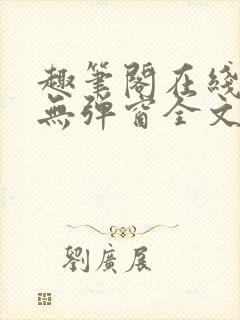 趣筆閣在綫
無彈窗全文
劉廣展